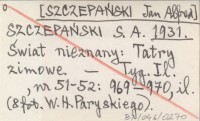 [SZCZEPAŃSKI Jan Alfred]
SZCZEPAŃSKI S. A. 1931.
Świat nieznany: Tatry
zimowe. — Tyg. Il.
, nr 51-52: 969-970, il.
(8 fot. W. H. Paryskiego).